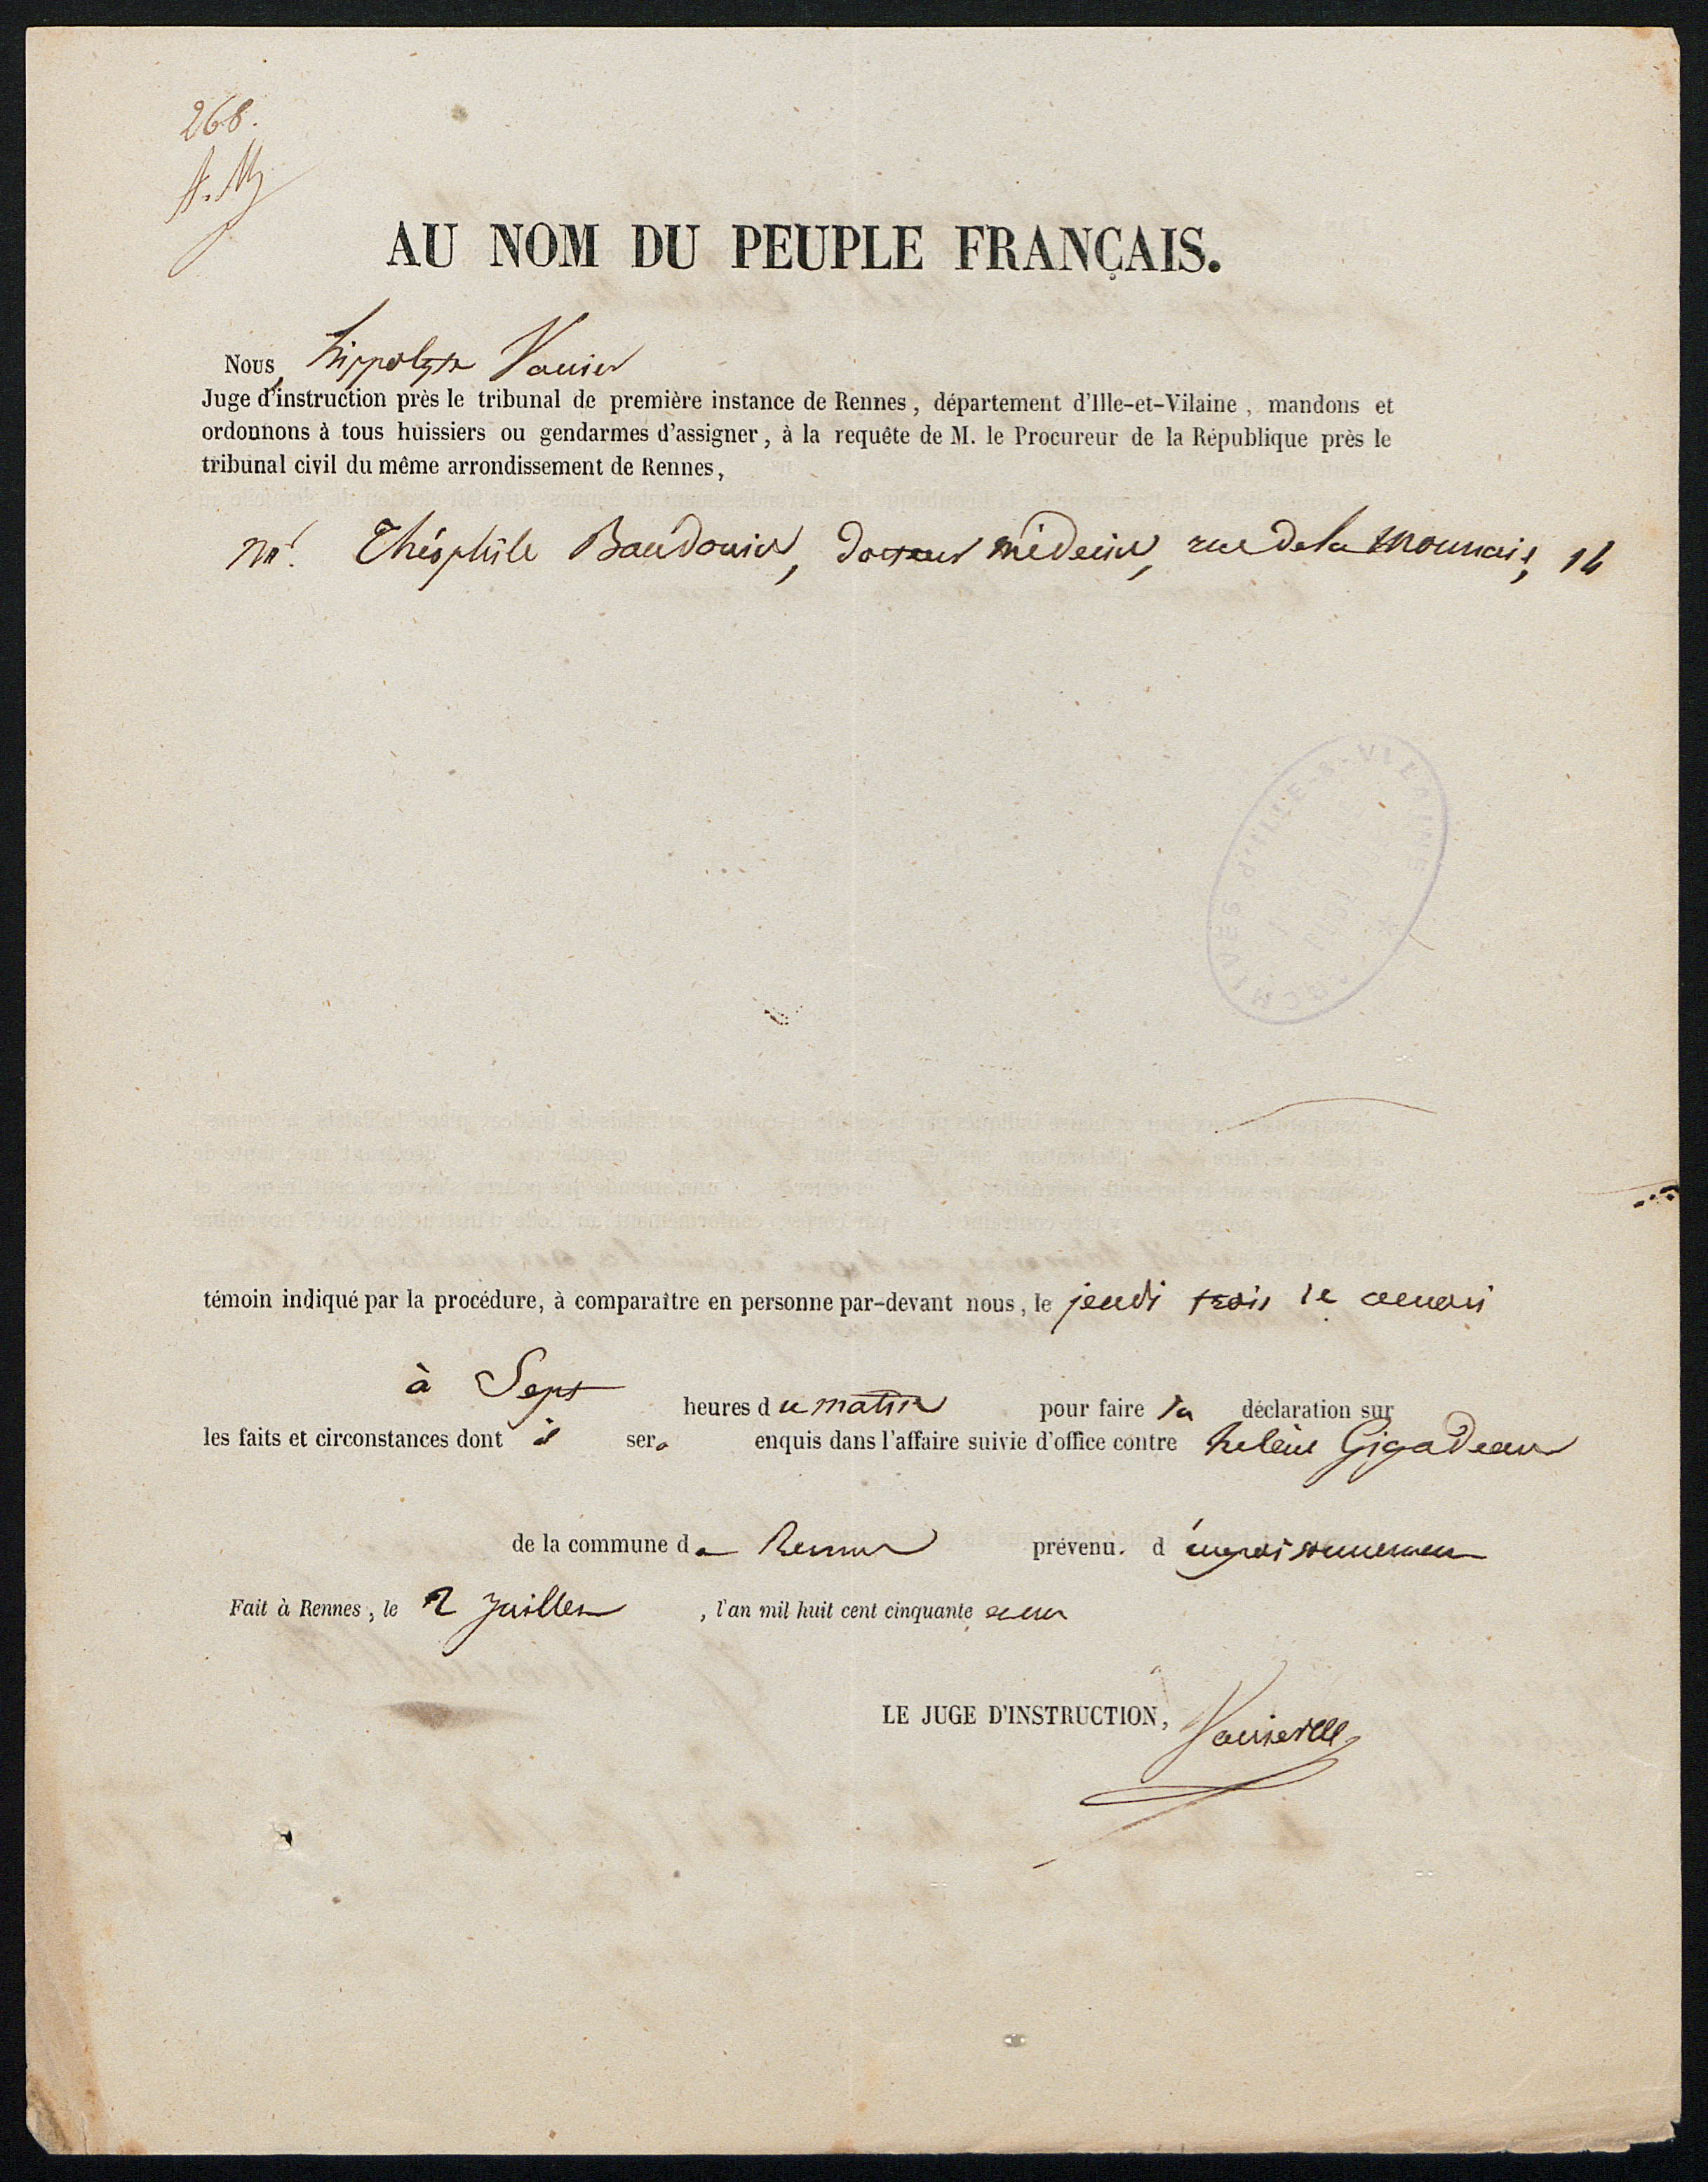 268.
AU NOM DU PEUPLE FRANÇAIS.
Nous, hippolyte Vanier
Juge d'instruction près le tribunal de première instance de Rennes, département d'Ille-et-Vilaine, mandons et
ordonnons à tous huissiers ou gendarmes d'assigner, à la requête de M. le Procureur de la République près le
tribunal civil du même arrondissement de Rennes,
Mr. Théophile Baudouin, docteur médecin, rue de la monnaie, 14
ARCHIVES D'ILLE-&-VILAINE
témoin indiqué par la procédure, à comparaître en personne par-devant nous, le jeudi trois de ce mois
à Sept heures du matin pour faire sa déclaration sur
les faits et circonstances dont il sera enquis dans l'affaire suivie d'office contre helène Gigadeau
de la commune de Rennes prévenu. d'empoisonnement
Fait à Rennes, le 2 Juillet, l'an mil huit cent cinquante
LE JUGE D'INSTRUCTION,